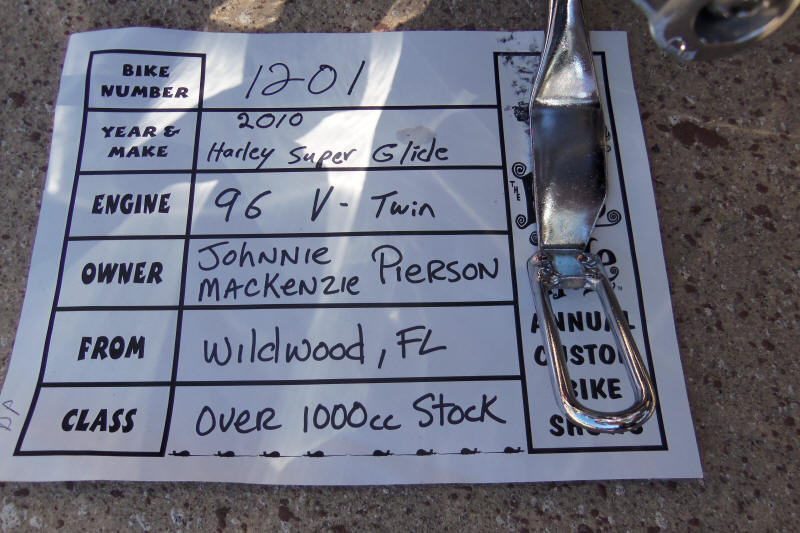 BIKE NUMBER 1201
YEAR & MAKE 2010
Harley Super Glide
ENGINE 96 V-Twin
OWNER Johnnie
Mackenzie Pierson
FROM Wildwood, FL
CLASS Over 1000cc Stock
THE
ANNUAL
CUSTOM
BIKE
SHOWS